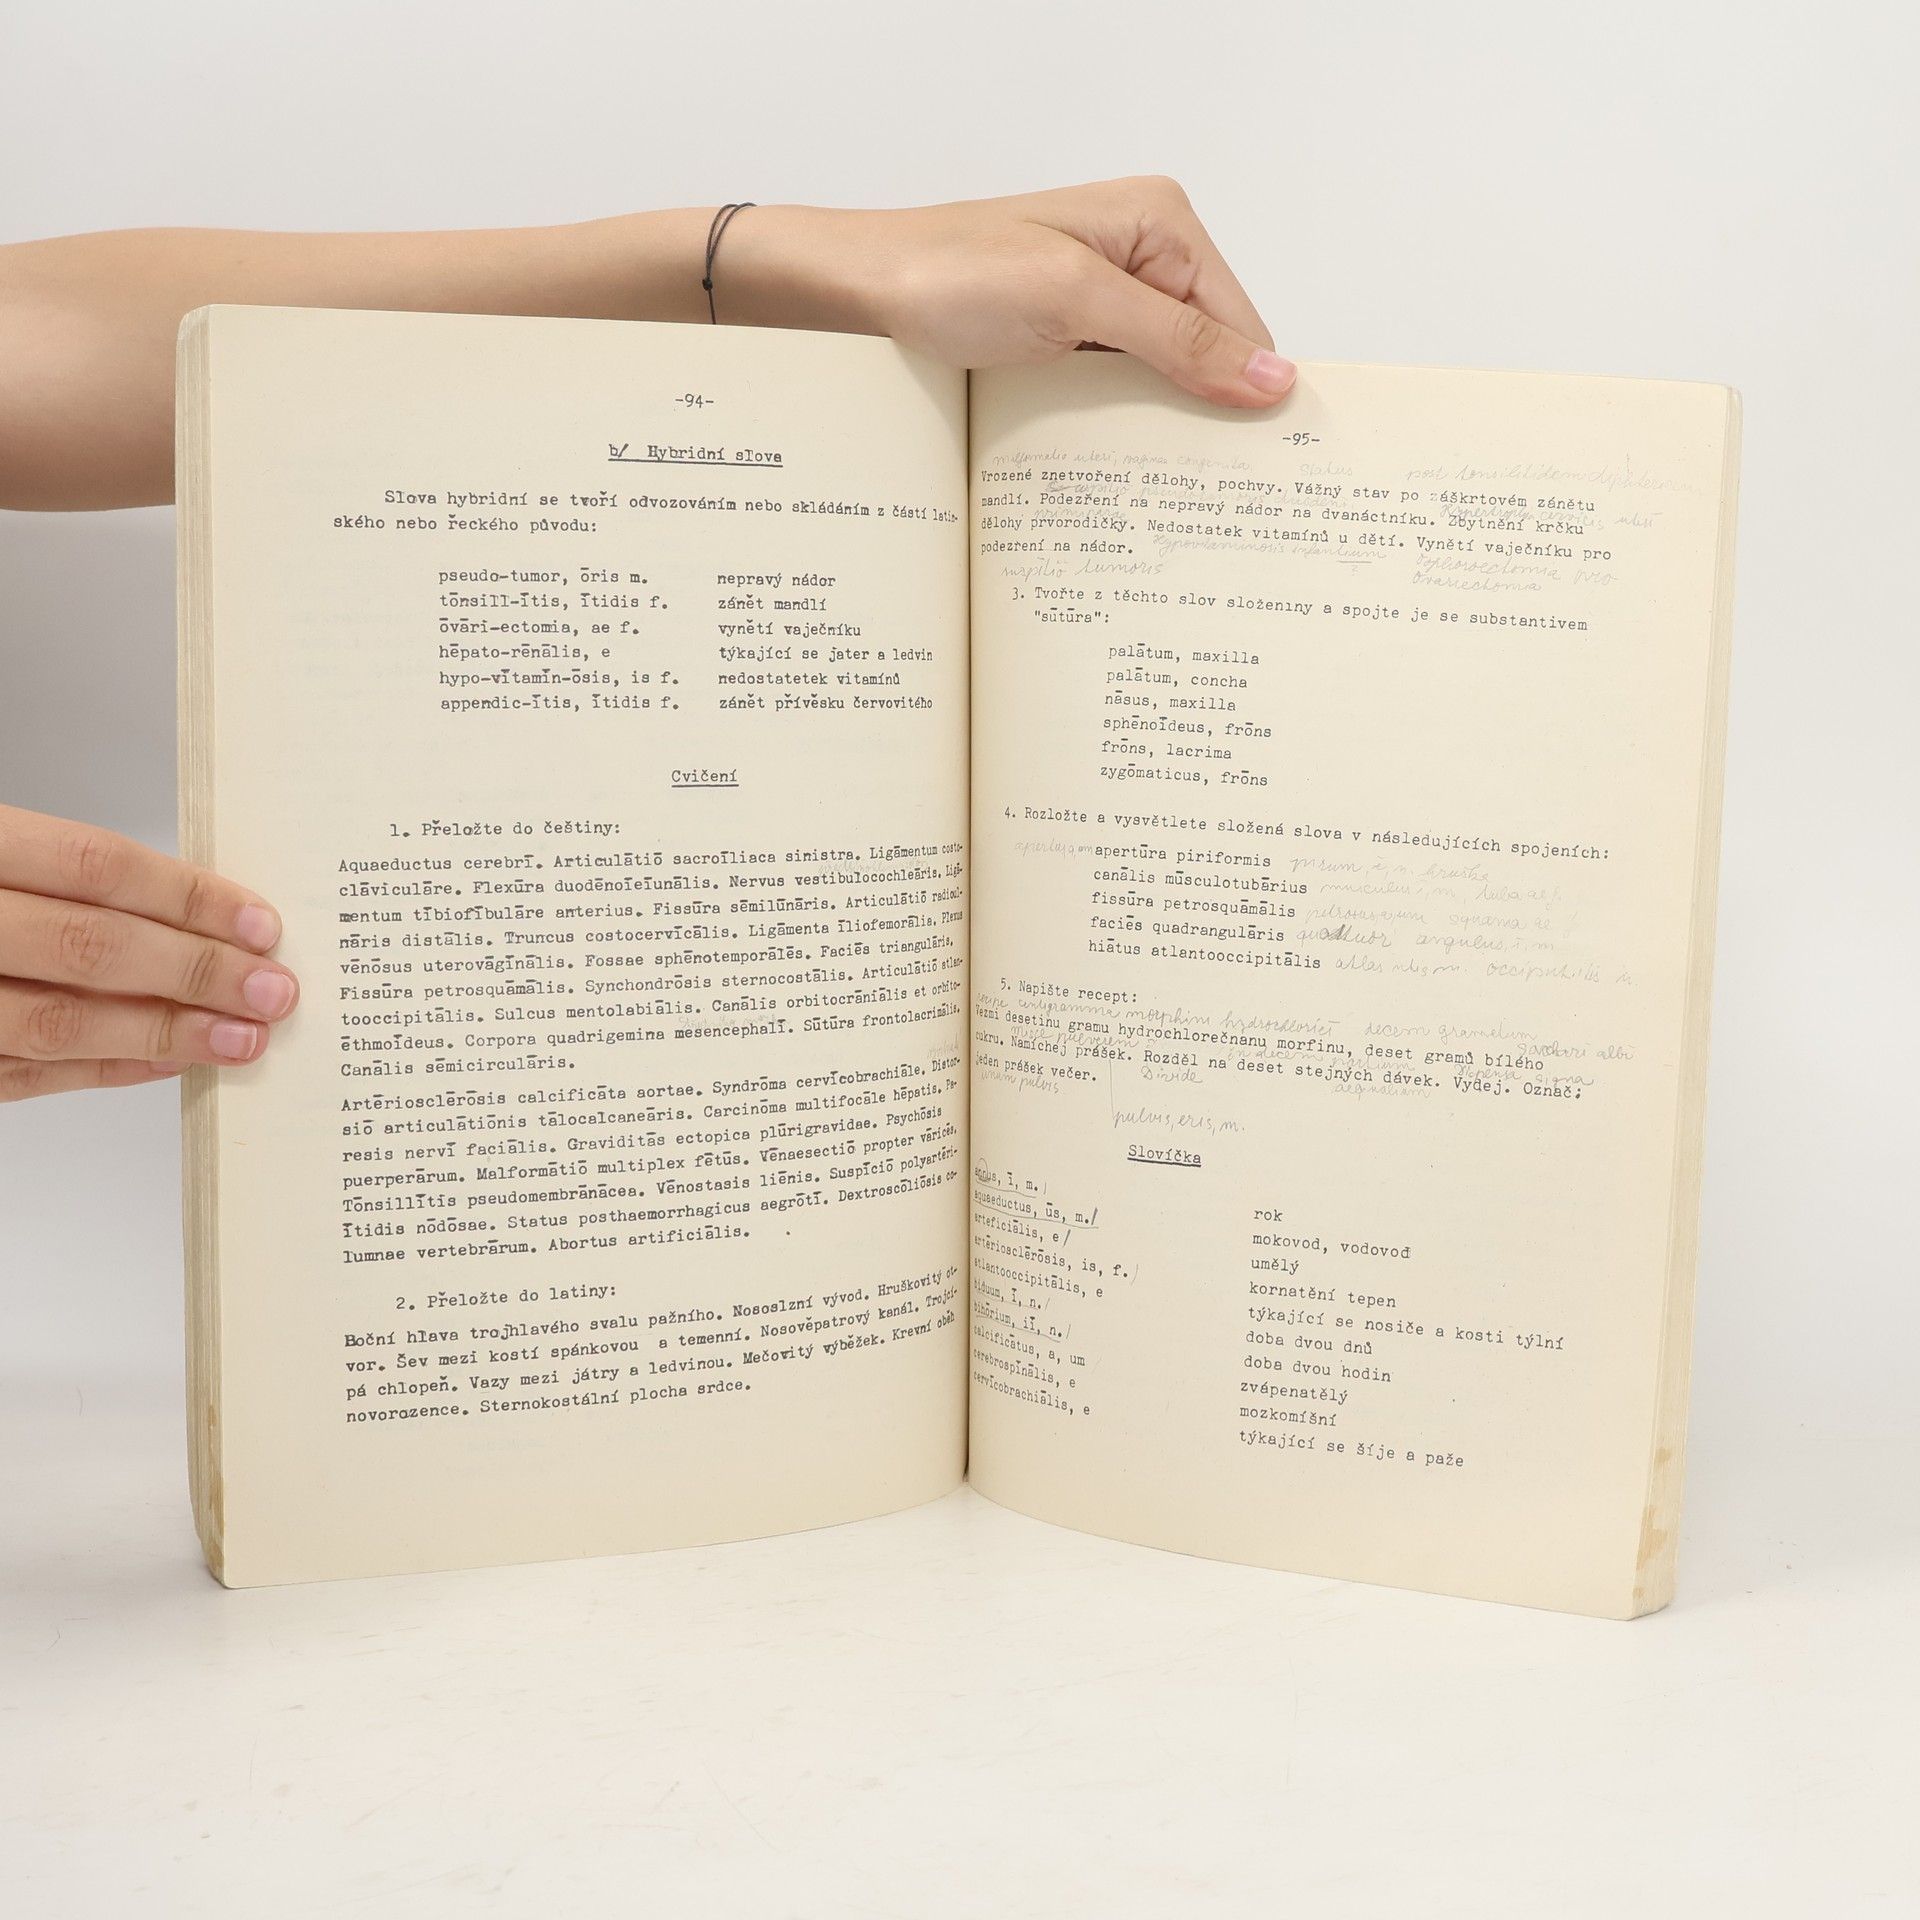 -94-
b/ Hybridní slova
Slova hybridní se tvoří odvozováním nebo skládáním z částí latin-
ského nebo řeckého původu:
pseudo-tumor, ōris m. nepravý nádor
tōnsill-ītis, ītidis f. zánět mandlí
ōvāri-ectomia, ae f. vynětí vaječníku
hēpato-rēnālis, e týkající se jater a ledvin
hypo-vītamīn-ōsis, is f. nedostatetek vitamínů
appendic-ītis, ītidis f. zánět přívěsku červovitého
Cvičení
1. Přeložte do češtiny:
Aquaeductus cerebrī. Articulātiō sacroīliaca sinistra. Ligāmentum costo-
clāviculāre. Flexūra duodēnoiēiūnālis. Nervus vestibulocochleāris. Ligā-
mentum tībiofībulāre anterius. Fissūra sēmilūnāris. Articulātiō radioul-
nāris distālis. Truncus costocervīcālis. Ligāmenta īliofemorālia. Plexus
vēnōsus uterovāgīnālis. Fossae sphēnotemporālēs. Faciēs triangulāris.
Fissūra petrosquāmālis. Synchondrōsis sternocostālis. Articulātiō atlan-
tooccipitālis. Sulcus mentolabiālis. Canālis orbitocrāniālis et orbito-
ēthmoīdeus. Corpora quadrigemina mesencephalī. Sūtūra frontolacrimālis.
Canālis sēmicirculāris.
Artēriosclērōsis calcificāta aortae. Syndrōma cervīcobrachiāle. Distor-
siō articulātiōnis tālocalcaneāris. Carcinōma multifocāle hēpatis. Pa-
resis nervī faciālis. Graviditās ectopica plūrigravidae. Psychōsis
puerperārum. Malformātiō multiplex fētūs. Vēnaesectiō propter varicēs.
Tōnsillītis pseudomembrānācea. Vēnostasis liēnis. Suspīciō polyartēri-
ītidis nōdōsae. Status posthaemorrhagicus aegrōtī. Dextroscōliōsis co-
lumnae vertebrārum. Abortus artificiālis.
2. Přeložte do latiny:
Boční hlava trojhlavého svalu pažního. Nososlzní vývod. Hruškovitý ot-
vor. Šev mezi kostí spánkovou a temenní. Nosověpatrový kanál. Trojcí-
pá chlopeň. Vazy mezi játry a ledvinou. Mečovitý výběžek. Krevní oběh
novorozence. Sternokostální plocha srdce.
-95-
malformatio uteri, vaginae congenita status post tonsilitidem
Vrozené znetvoření dělohy, pochvy. Vážný stav po záškrtovém zánětu
mandlí. Podezření na nepravý nádor na dvanáctníku. Zbytnění krčku
dělohy prvorodičky. Nedostatek vitamínů u dětí. Vynětí vaječníku pro
podezření na nádor.
tumoris
3. Tvořte z těchto slov složeniny a spojte je se substantivem
"sūtūra":
palātum, maxilla
palātum, concha
nāsus, maxilla
sphēnoīdeus, frōns
frōns, lacrima
zygōmaticus, frōns
4. Rozložte a vysvětlete složená slova v následujících spojeních:
apertūra piriformis pirum, i, n. hruška
canālis mūsculotubārius musculus, i, m, tuba ae f.
fissūra petrosquāmālis
faciēs quadrangulāris quattuor angulus, i, m.
hiātus atlantooccipitālis
5. Napište recept:
centigramma morphini hydrochlorici decem gramatum
Vezmi desetinu gramu hydrochlorečnanu morfinu, deset gramů bílého
cukru. Namíchej prášek. Rozděl na deset stejných dávek. Vydej. Označ:
jeden prášek večer. Divide
unum pulvis
pulvis, eris, m.
Slovíčka
annus, ī, m. rok
aquaeductus, ūs, m. mokovod, vodovod
arteficiālis, e umělý
artēriosclērōsis, is, f. kornatění tepen
atlantooccipitālis, e týkající se nosiče a kosti týlní
bīduum, ī, n. doba dvou dnů
bihōrium, iī, n. doba dvou hodin
calcificātus, a, um zvápenatělý
cerebrospīnālis, e mozkomíšní
cervīcobrachiālis, e týkající se šíje a paže